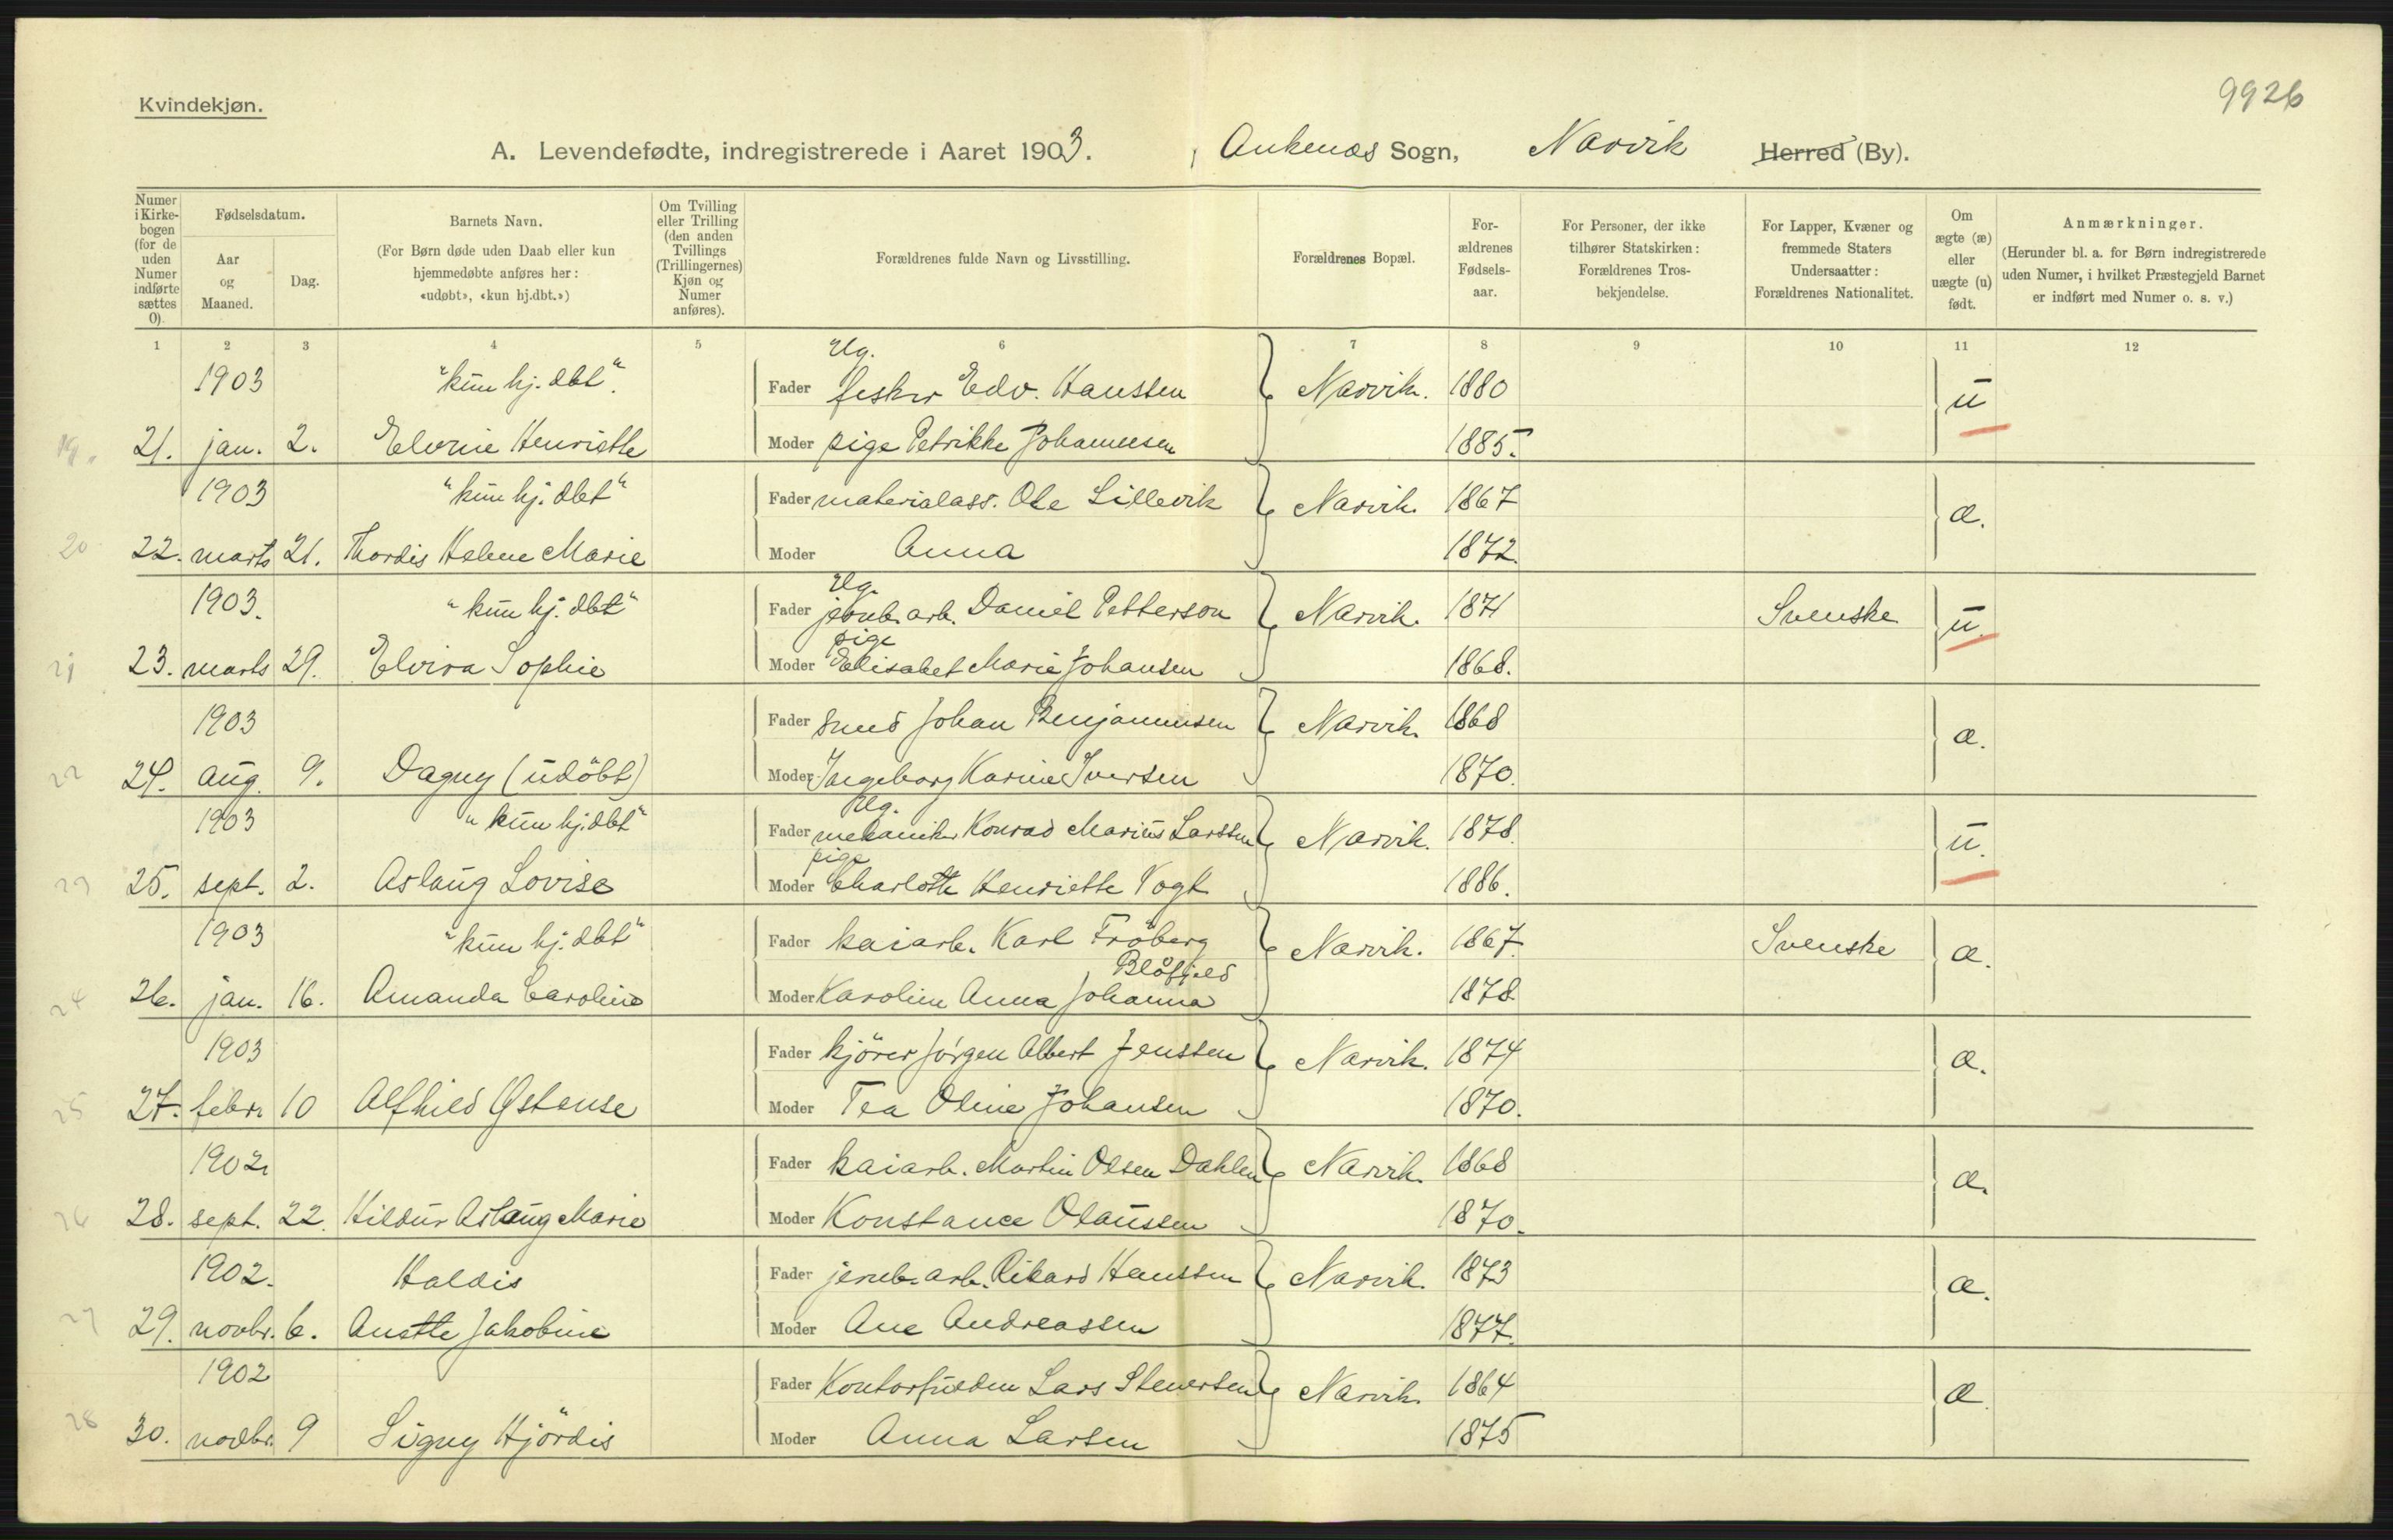 9926
Kvindekjøn.
A. Levendefødte, indregistrerede i Aaret 1903. Ankenæs Sogn, Narvik Herred (By).
Numer i Kirkebogen (for de uden Numer indførte sættes 0).
Fødselsdatum.
Aar og Maaned.
Dag.
Barnets Navn.
(For Børn døde uden Daab eller kun hjemmedøbte anføres her: «udøbt», «kun hj.dbt.»)
Om Tvilling eller Trilling (den anden Tvillings (Trillingernes) Kjøn og Numer anføres).
Forældrenes fulde Navn og Livsstilling.
Forældrenes Bopæl.
Forældrenes Fødselsaar.
For Personer, der ikke tilhører Statskirken: Forældrenes Trosbekjendelse.
For Lapper, Kvæner og fremmede Staters Undersaatter: Forældrenes Nationalitet.
Om ægte (æ) eller uægte (u) født.
Anmærkninger.
(Herunder bl. a. for Børn indregistrerede uden Numer, i hvilket Præstegjeld Barnet er indført med Numer o. s. v.)
1 2 3 4 5 6 7 8 9 10 11 12
Ug.
1903 "kun hj. dbt". Fader fisker Edv. Hanssen Narvik. 1880 u
19. 21. jan. 2. Elvine Henriette Moder pige Petrikke Johannesen 1885.
1903 "kun hj. dbt" Fader materialass. Ole Lillevik Narvik. 1867 æ.
20 22. marts 21. Thordis Helene Marie Moder Anna 1872.
Ug.
1903. "kun hj. dbt" Fader jernb. arb. Daniel Petterson Narvik. 1871 Svenske u.
pige
21 23. marts 29. Elvira Sophie Moder Elisabet Marie Johansen 1868.
1903 Fader smed Johan Benjaminsen Narvik. 1868 æ.
22 24. aug. 9. Dagny (udöbt) Moder Ingeborg Karine Iversen 1870.
Ug.
1903 "kun hj. dbt" Fader mekaniker Konrad Marius Larssen Narvik. 1878. u.
pige
23 25. sept. 2. Aslaug Lovise Moder Charlotte Henriette Vogt 1886.
1903 "kun hj. dbt" Fader kaiarb. Karl Fröberg Narvik. 1867. Svenske æ.
Blåfjeld
24 26. jan. 16. Amanda Caroline Moder Karoline Anna Johanna 1878.
1903 Fader kjörer Jörgen Albert Jenssen Narvik. 1874 æ.
25 27. febr. 10 Alfhild Østense Moder Tea Oline Johansen 1870.
1902 Fader kaiarb. Martin Olsen Dahlen Narvik. 1868 æ.
26 28. sept. 22. Hildur Aslaug Marie Moder Konstance Olaussen 1870.
1902. Haldis Fader jernb. arb. Rikard Hanssen Narvik. 1873 æ.
27 29. novbr. 6. Anette Jakobine Moder Ane Andreassen 1877.
1902 Fader Lars Stenersen Narvik. 1864 æ.
28 30. novbr. 9 Signy Hjördis Moder Anna Larsen 1875